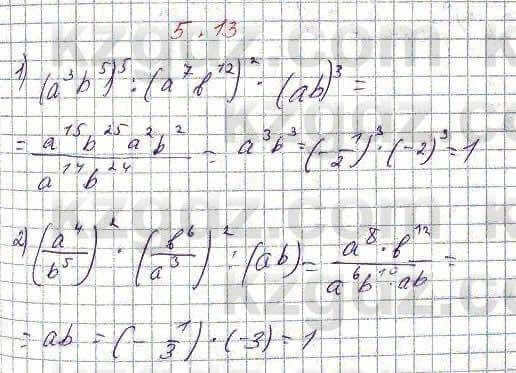 5.13
1) (a³b⁵)⁵ : (a⁷b¹²)² · (ab)³ =
= a¹⁵b²⁵a²b² / a¹⁴b²⁴ = a³b³ = (-1/2)³ · (-2)³ = 1
2) (a⁴/b⁵)² · (b⁶/a³)² : (ab) = a⁸·b¹² / a⁶b¹⁰·ab =
= ab = (-1/3) · (-3) = 1
kzgdz.com